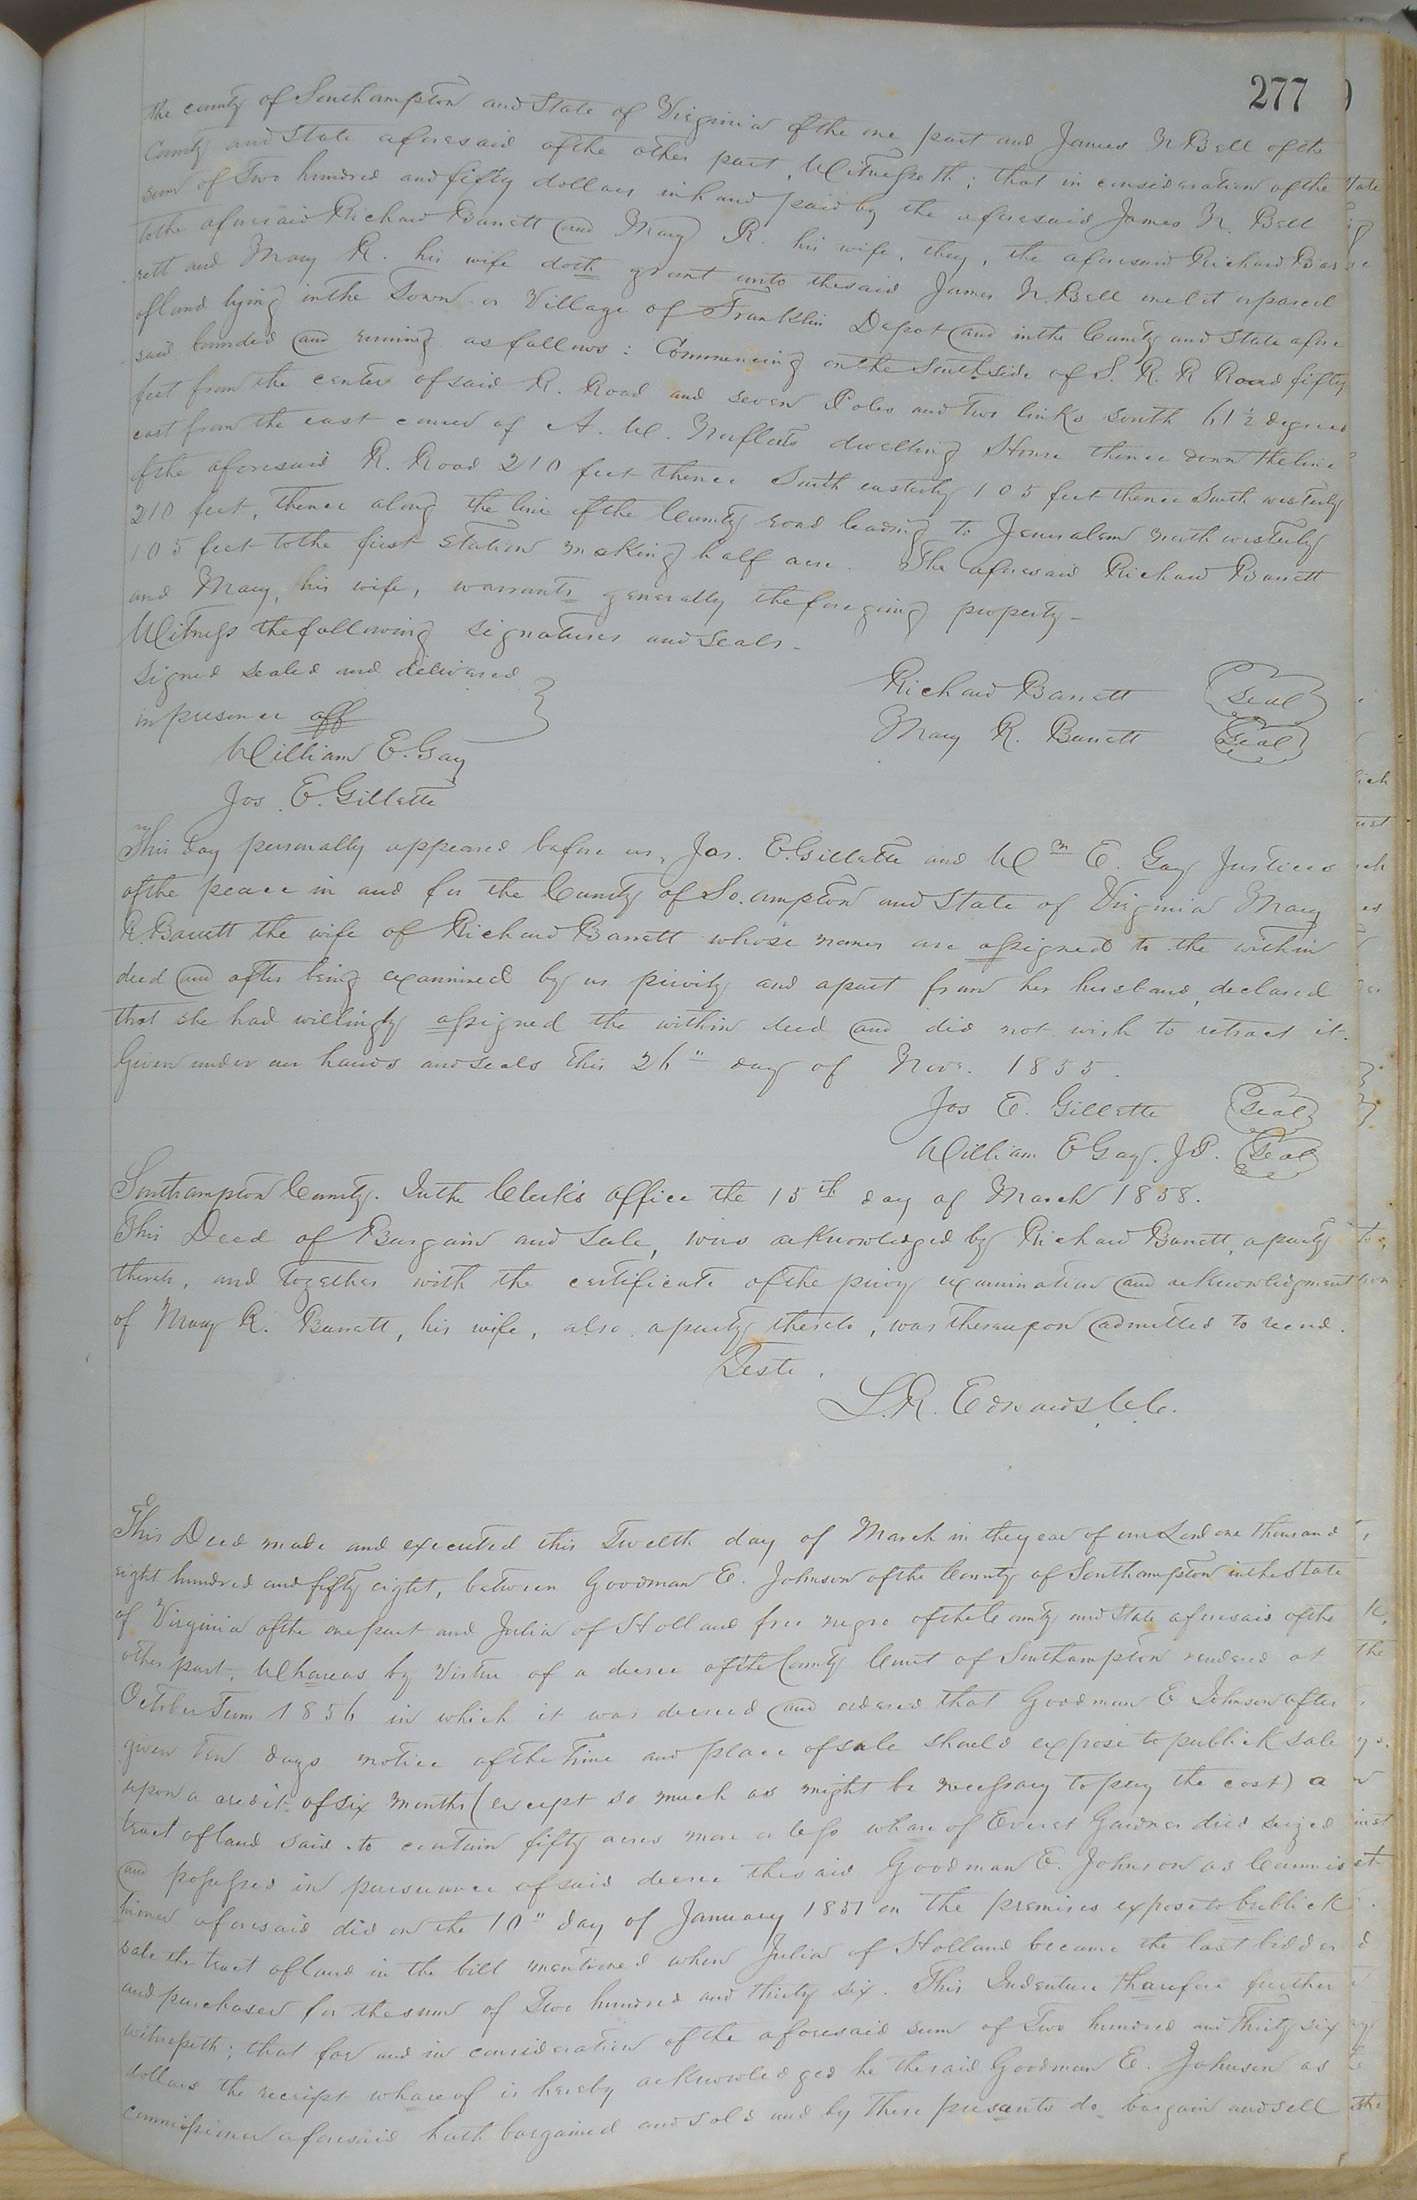 277
the county of Southampton and State of Virginia of the one part and James N Bell of the
County and State aforesaid of the other part, Witnesseth; that in consideration of the
sum of Two hundred and fifty dollars in hand paid by the aforesaid James N. Bell
to the aforesaid Richard Barrett and Mary R. his wife, they, the aforesaid Richard Bar
rett and Mary R. his wife doth grant unto the said James N. Bell one lot or parcel
of land lying in the Town or Village of Franklin Depot and in the County and State afore
said bounded and running as follows: Commencing on the South side of S. R. R Road fifty
feet from the centre of said R. Road and seven Poles and two links south 61½ degrees
east from the east corner of A. W. Norfleets dwelling House thence down the line
of the aforesaid R. Road 210 feet thence South easterly 105 feet thence South westerly
210 feet, thence along the line of the County road leading to Jerusalem north westerly
105 feet to the first station making half acre. The aforesaid Richard Barrett
and Mary, his wife, warrants generally the foregoing property—
Witness the following signatures and seals.
Signed sealed and delivered
in presence off
Richard Barrett Seal
Mary R. Barrett Seal
William E. Gay
Jos. E. Gillette
This day personally appeared before us, Jos. E. Gillette and Wm E. Gay Justices
of the peace in and for the County of So.ampton and State of Virginia Mary
R Barrett the wife of Richard Barrett whose names are assigned to the within
deed and after being examined by us privity and apart from her husband, declared
that she had willingly assigned the within deed and did not wish to retract it.
Given under our hands and seals this 26" day of Novr. 1855.
Jos E. Gillette Seal
William E Gay. J.P. Seal
Southampton County. In the Clerk's office the 15th day of March 1858.
This Deed of Bargain and Sale, was acknowledged by Richard Barrett, a party
thereto, and together with the certificate of the privy examination and acknowledgment
of Mary R. Barrett, his wife, also a party thereto, was thereupon admitted to record.
Teste.
L. R. Edwards C.C.
This Deed made and executed this Twelth day of March in the year of our Lord one thousand
eight hundred and fifty eight, between Goodman E. Johnson of the County of Southampton in the State
of Virginia of the one part and Julia of Holland free negro of the County and State aforesaid of the
other part, Whareas by Virtue of a decree of the County Court of Southampton rendered at
October Term 1856 in which it was decreed and ordered that Goodman E Johnson after
given ten days notice of the time and place of sale should expose to publick sale
upon a credit of six months (except so much as might be necessary to pay the cost) a
tract of land said to contain fifty acres more or less whareof Everet Gardner died seized
and possessed in pursuance of said decree the said Goodman E. Johnson as Commis
sioner aforesaid did on the 10" day of January 1857 on the premises expose to publick
sale the tract of land in the bill mentioned when Julia of Holland became the last bidder
and purchaser for the sum of Two hundred and thirty six. This Indenture tharefore further
witnesseth; that for and in consideration of the aforesaid sum of Two hundred and Thirty six
dollars the receipt whareof is hereby acknowledged he the said Goodman E. Johnson as
commissioner aforesaid hath bargained and sold and by these presants do bargain and sell